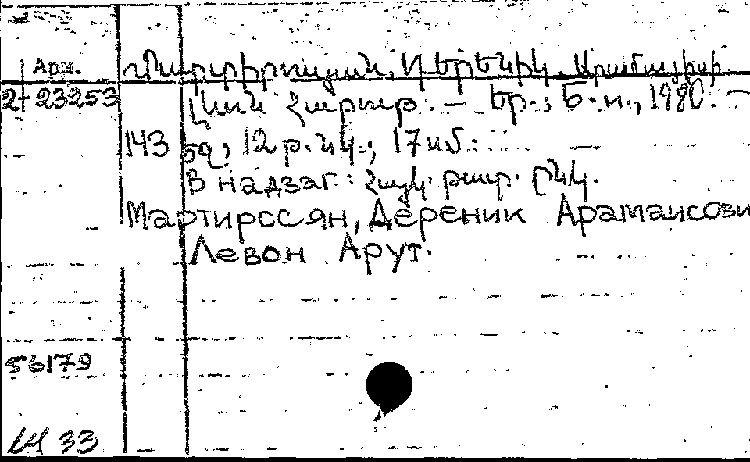 Арм. Մարտիրոսյան, Դերենիկ Արամայիսի
2-23253 Լևոն Հարութ. — Եր., Б. и., 1980. —
143 59, 12 թ. նկ., 17 սմ.
В надзаг.: Հայկ. թատ. ընկ.
Мартиросян, Дереник Арамаисови
Левон Арут.
56179
33